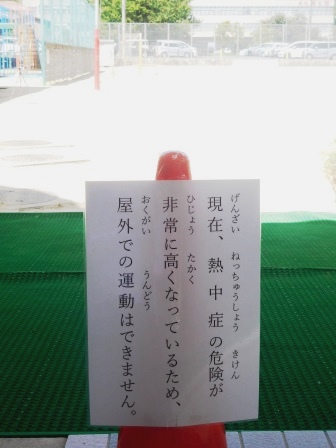 現在、熱中症の危険が
げんざい ねっちゅうしょう きけん
非常に高くなっているため、
ひじょう たかく
屋外での運動はできません。
おくがい うんどう